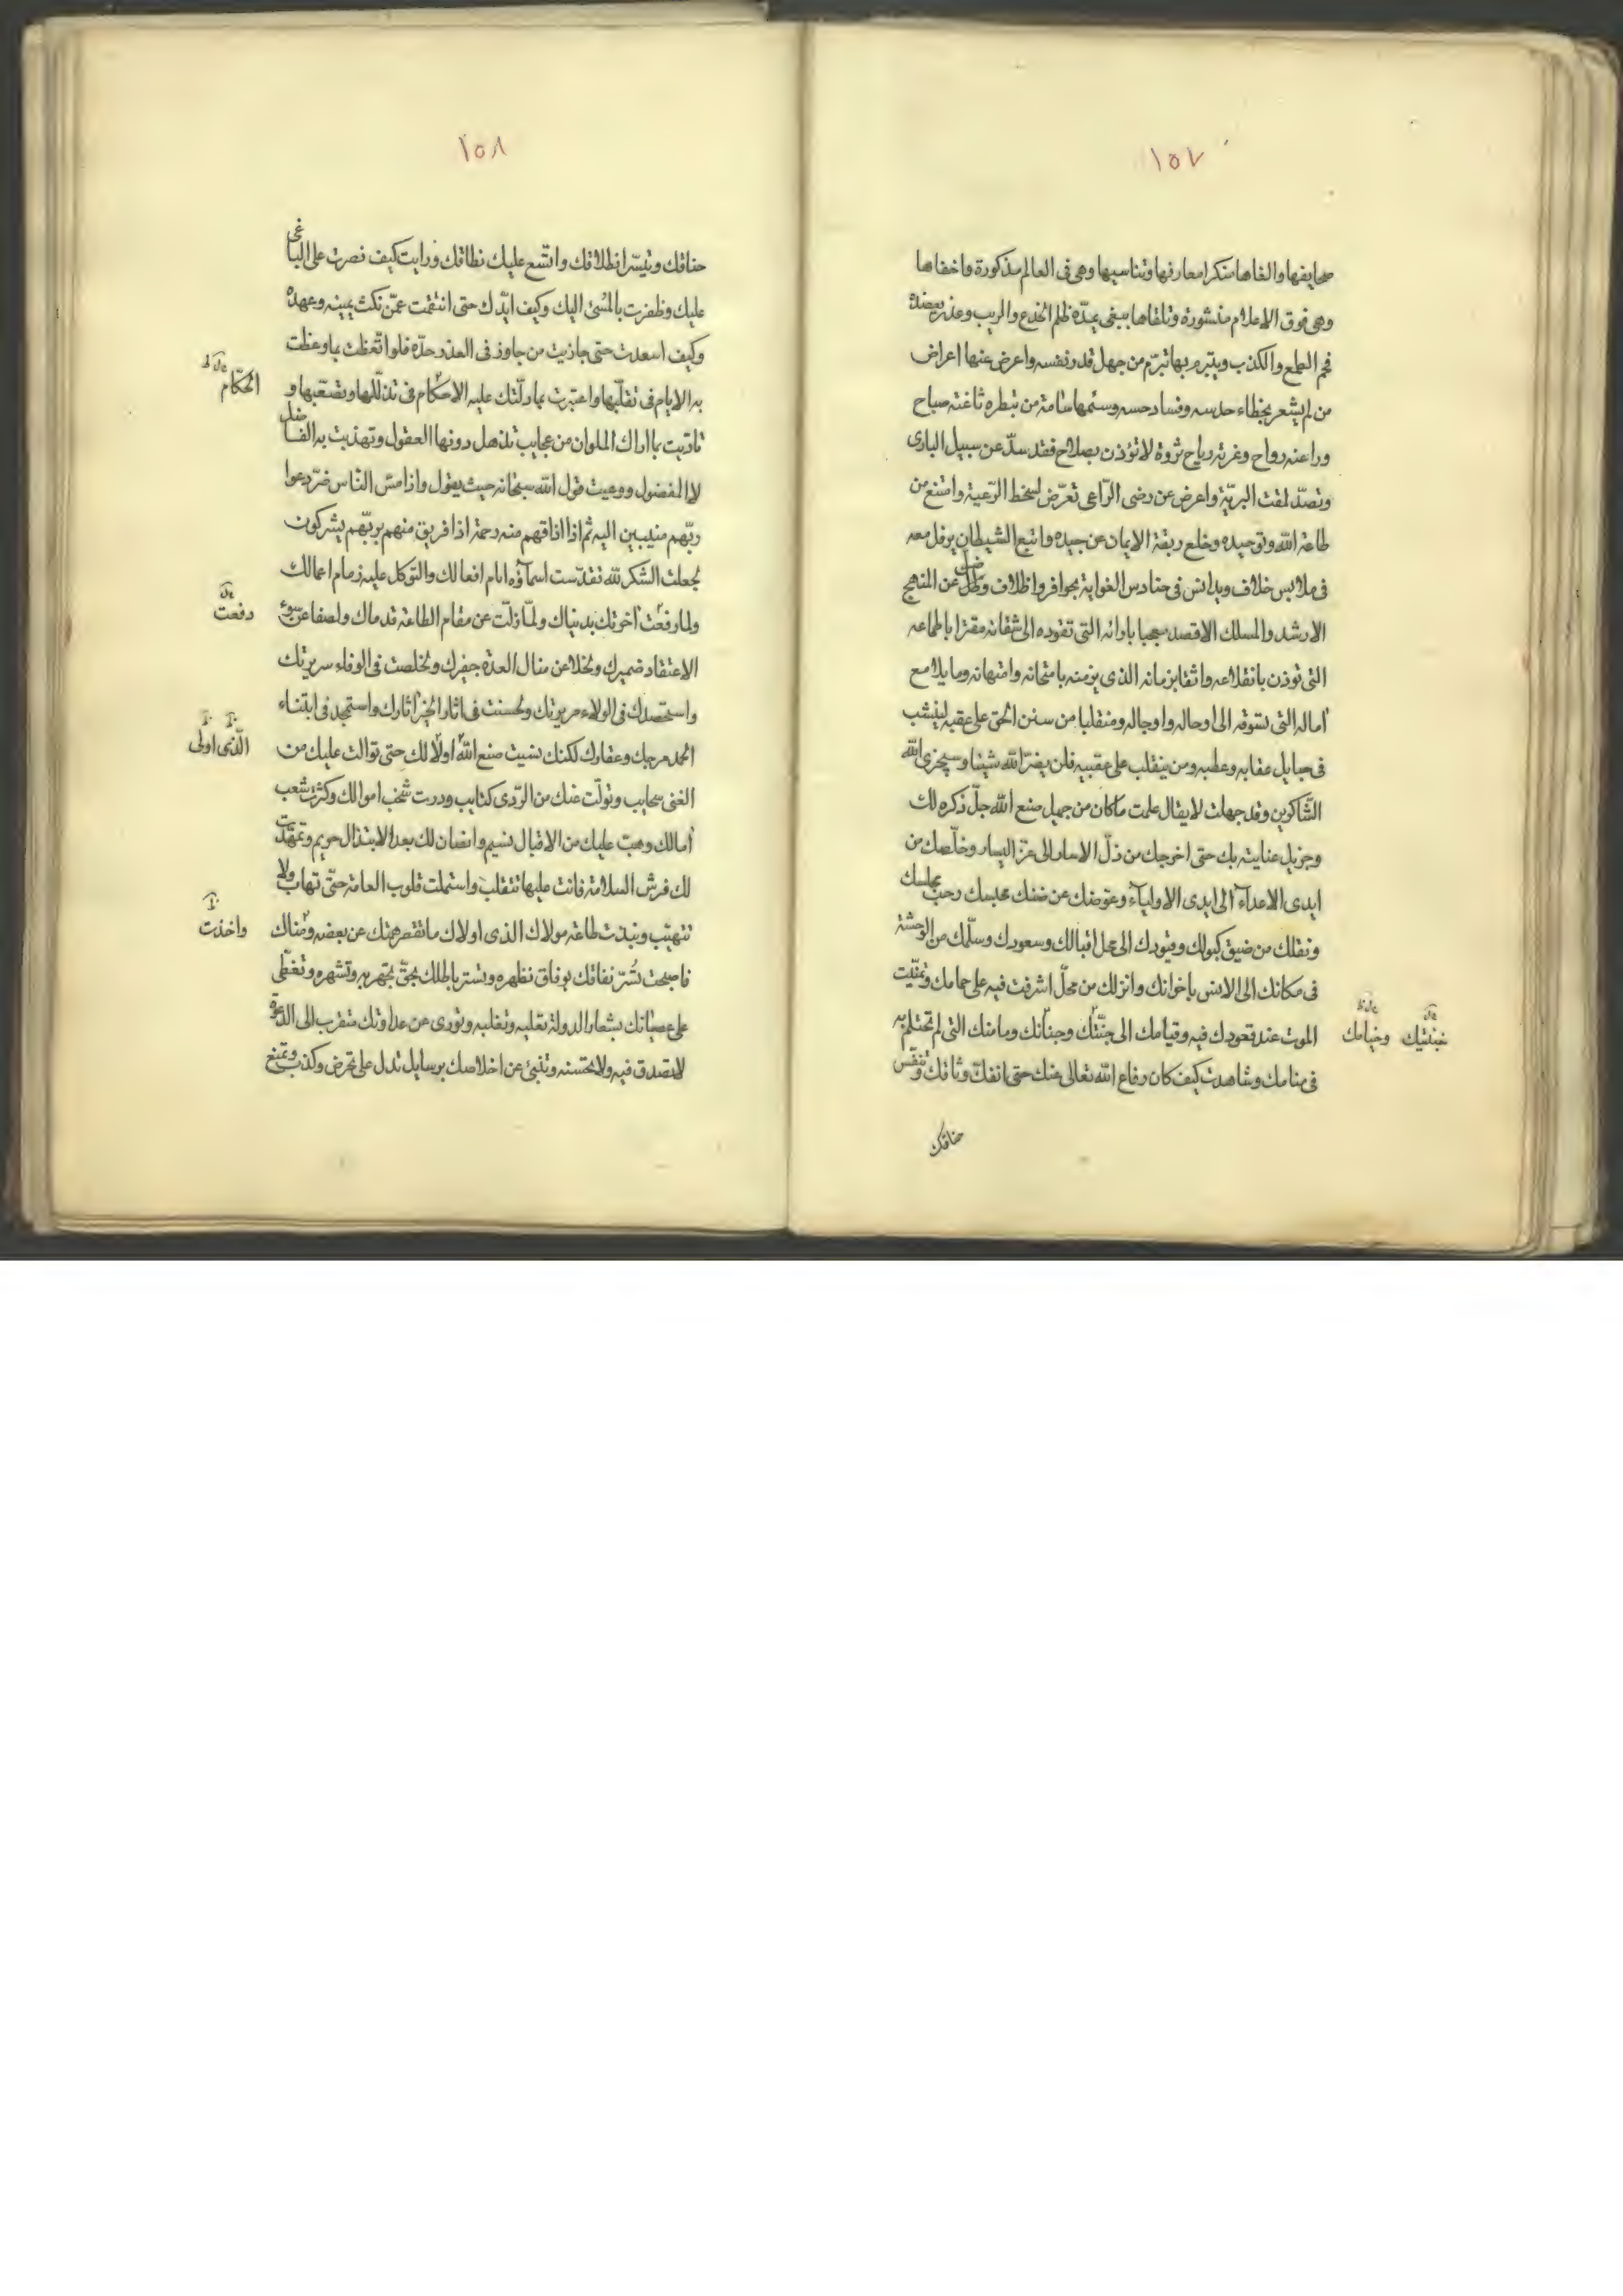 ١٥٧
صحايفها والفاها منكرا معارفها وتناسيها وهى فى العالم مذكورة واخفاها
وهى فوق الاعلام منشورة وتلقاها ببغى يمدّه ظلم الخدع والريب وعذر يعضده
فحم الطمع والكذب ويتبرم بها تبرّم من جهل قدر نفسه واعرض عنها اعراض
من لم يشعر بخطاء حدسه وفساد حسه وسئمها سامة من تبطره ثاغية صباح
وراغية رواح وغرته رياح ثروة لا تؤذن بصلاح فقد سدّ عن سبيل البارى
وتصدّ لمقت البريّة واعرض عن رضى الرّاعى تعرّض لسخط الرّعية وامتنع من
طاعة الله وتوحيده وخلع ربقة الايمان عن جيده واتبع الشيطان يرفل معه
فى ملابس خلاف ويدانس فى حنادس الغواية بحوافر واظلاف وضل عن المنهج
الارشد والمسلك الاقصد معجبا بارائه التى تقوده الى شقائه مقترا باطماعه
التى توذن بانقلاعه واثقا بزمانه الذى يزمنه بامتحانه وامتهانه وما يلامع
آماله التى تسوقه الى اوحاله واوجاله ومنقلبا من سنن الحق على عقبه لينشب
فى حبايل عقابه وعطبه ومن ينقلب على عقبيه فلن يضرّ الله شيئا وسيجزى الله
الشّاكرين وقد جهلت لا يقال علمت ما كان من جميل صنع الله جلّ ذكره لك
وجزيل عنايته بك حتى اخرجك من ذلّ الاسار الى عزّ اليسار وخلّصك من
ايدى الاعداء الى ايدى الاولياء وعوّضك عن ضنك محبسك رحب مجلسك
ونقلك من ضيق كبولك وقيودك الى محل اقبالك وسعودك وسلّمك من الوحشة
فى مكانك الى الانس باخوانك وانزلك من محلّ اشرفت فيه على حمامك وتمنّيت
الموت عند قعودك فيه وقيامك الى جنّتك وجنانك ومامنك التى لم تحتلم به
فى منامك وشاهدت كيف كان دفاع الله تعالى عنك حتى انفكّ وثاقك وتنفّس
خناقك
خبنتيك وخيامك
١٥٨
خناقك وتيسّر انطلاقك واتّسع عليك نطاقك ورايت كيف نصرت على الباغى
عليك وظفرت بالمسئ اليك وكيف ايّدك حتى انتقمت عمّن نكث يمينه وعهده
وكيف اسعدت حتى جاذيت من جاوز فى العذر حدّه فلو اتّعظت بما وعظت
به الايام فى تقلّبها واعتبرت بما دلّتك عليه الاحكام فى تذلّلها وتصعّبها و
تادّبت بما اراك الملوان من عجايب تذهل دونها العقول وتهذبت به الفاضل
لا المفضول ووعيت قول الله سبحانه حيث يقول واذا مسّ النّاس ضرّ دعوا
ربّهم منيبين اليه ثم اذا اذاقهم منه رحمة اذا فريق منهم بربّهم يشركون
لجعلت الشكر لله تقدّست اسماؤه امام افعالك والتّوكل عليه زمام اعمالك
ولما رفعت آخرتك بدنياك ولمّا زلّت عن مقام الطاعة قدماك ولصفا عن سوء
الاعتقاد ضميرك ولخلا عن منال العدة جفيرك ولخلصت فى الوفاء سريرتك
واستحصدك فى الولاء مريرتك ولحسنت فى آثار الخير آثارك واستمجد فى ابتناء
الحمد مرجك وعفارك لكنك نسيت صنع الله اولا لك حتى توالت عليك من
الغنى سحايب وتولّت عنك من الرّدى كتايب ودرت شخب اموالك وكثرت شعب
آمالك وهبّ عليك من الاقبال نسيم وانصان لك بعد الابتذال حريم وتمهّدت
لك فرش السلامة فانت عليها تتقلب واستملت قلوب العامة حتّى تهاب ولا
تتهيّب ونبذت طاعة مولاك الذى اولاك ما تقصر همتك عن بعضه ومناك
فاصبحت تسّر نفاقك بوفاق تظهره وتستر باطلك بحقّ تجهر به وتشهره وتغطّى
على عصيانك بشعار الدولة تقلبه وتغلبه وتورى عن عداوتك متقرب الى الدعوة
لا تصدق فيه ولا تحسنه وتنبئ عن اخلاصك برسايل تدل على تحرض وكذب وتمنع
الحكّام
دفعت
الّذى اولى
واخذت